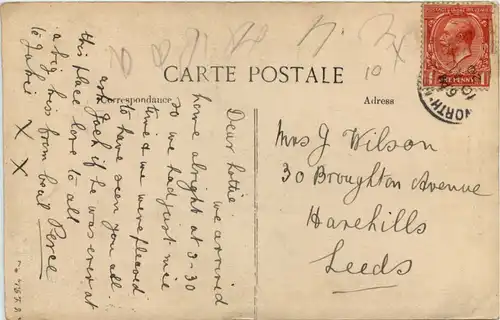 CARTE POSTALE
Correspondance
Adresse
10
ONE PENNY
NORTH
Dear Lottie. we arrived
home alright at 9-30
so we had just nice
time & we were pleased
to have seen you all.
ask Jack if he was ever at
this place love to all
a big kiss from
to Jackie X X
Mrs J Wilson
30 Broughton Avenue
Harehills
Leeds